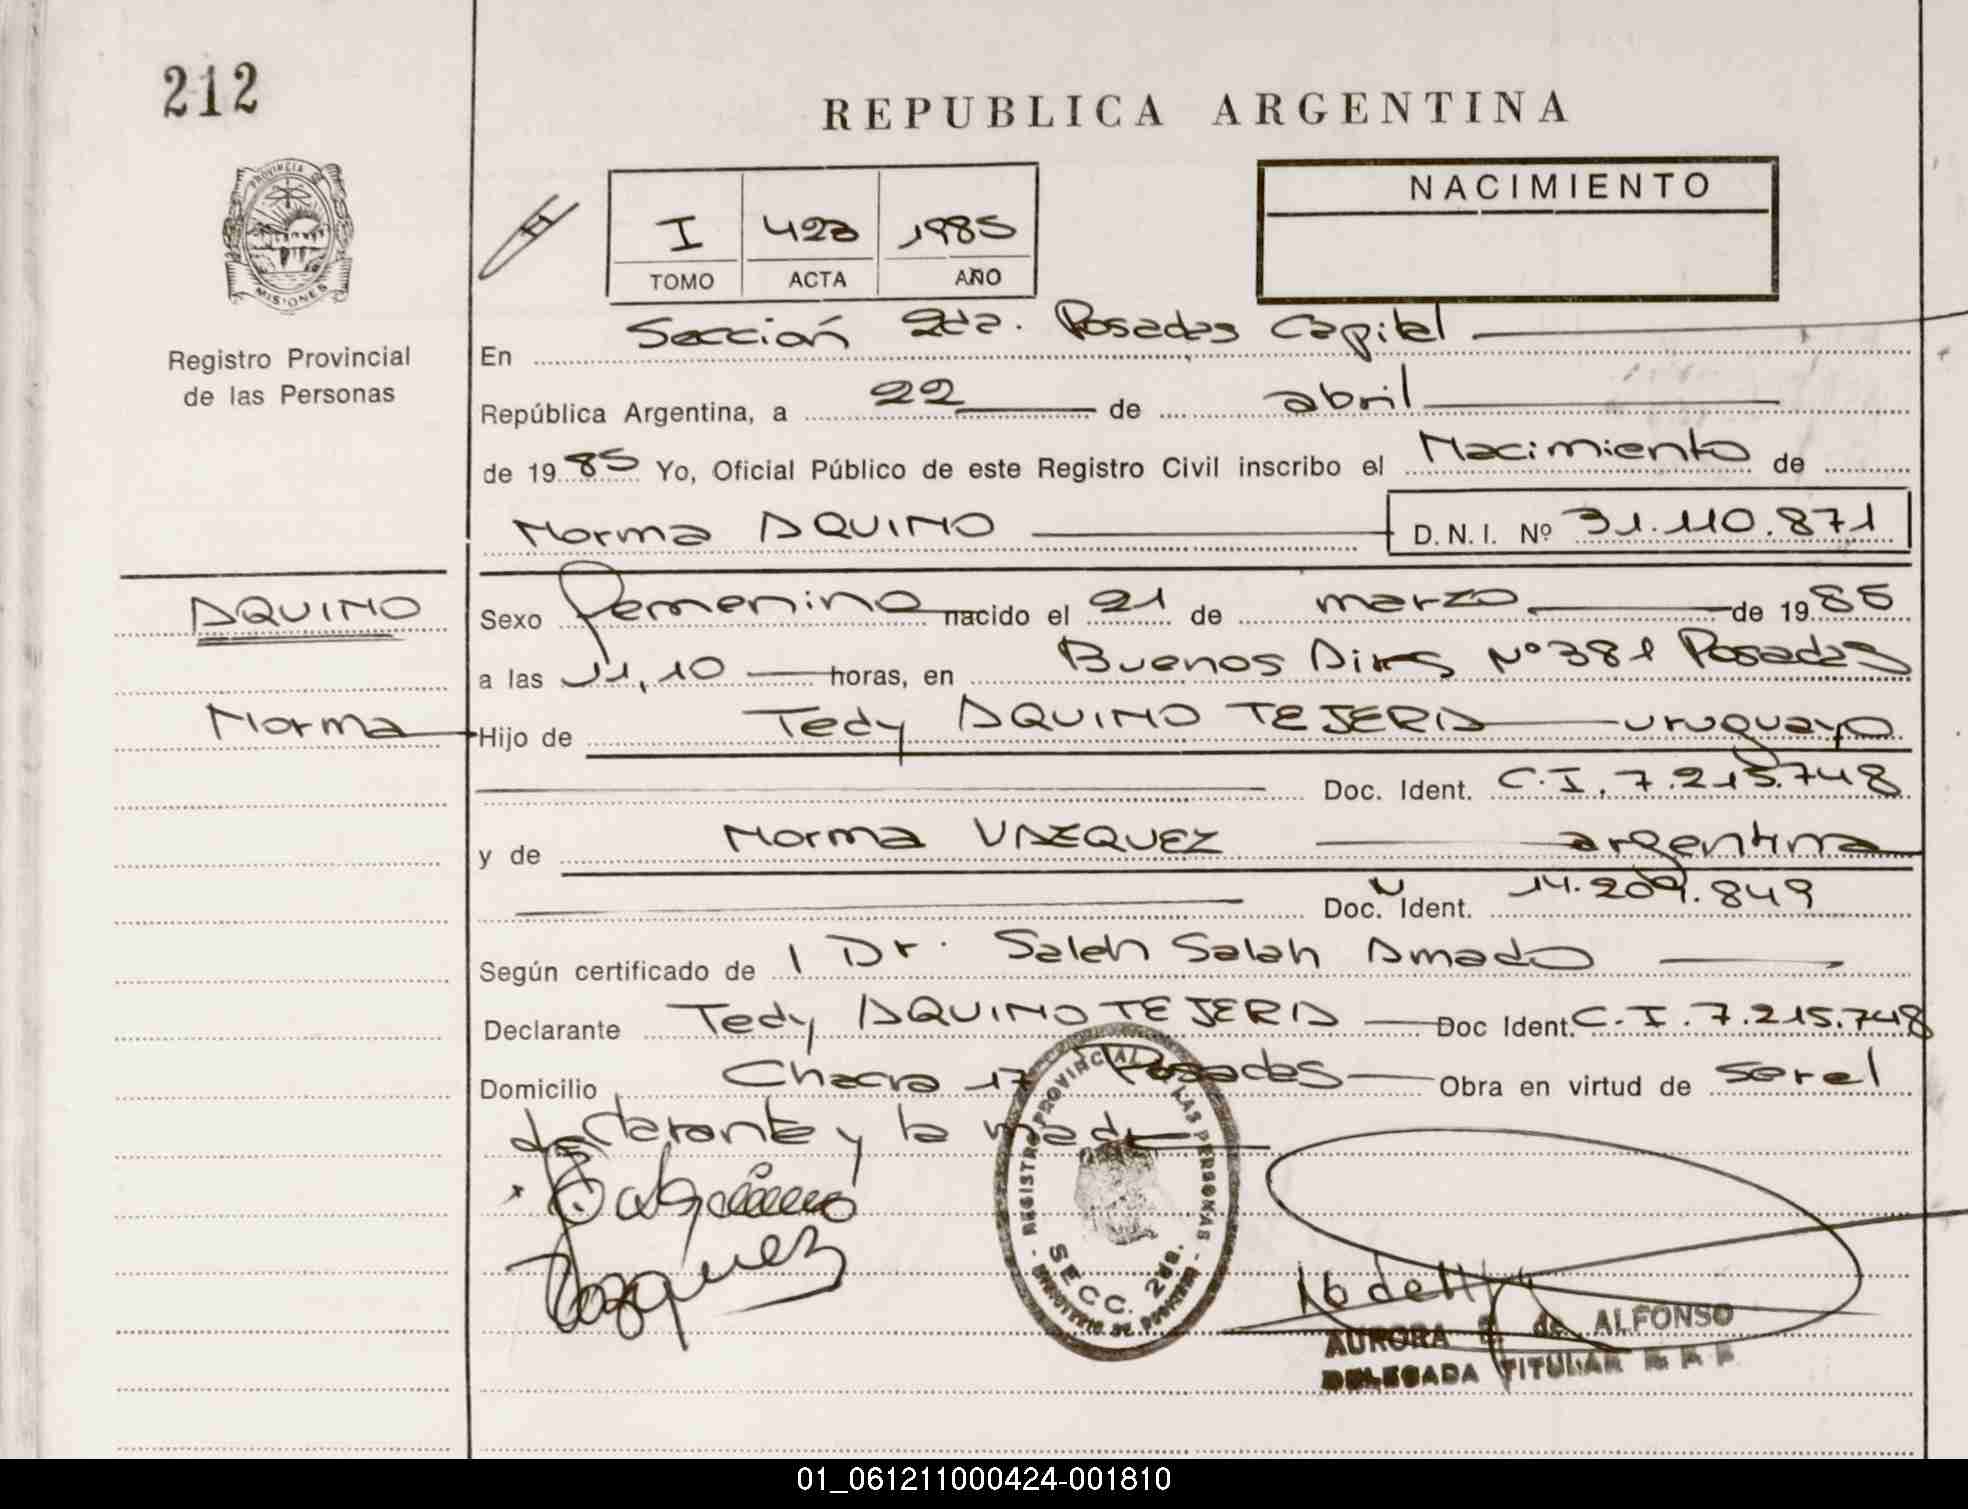 212
REPUBLICA ARGENTINA
PROVINCIA DE
MISIONES
Registro Provincial
de las Personas
I 423 1985
TOMO ACTA AÑO
NACIMIENTO
En Sección 2da. Posadas Capital
República Argentina, a 22 de abril
de 1985 Yo, Oficial Público de este Registro Civil inscribo el Nacimiento de
Norma AQUINO D.N.I. Nº 31.110.871
AQUINO
Norma
Sexo femenino nacido el 21 de marzo de 1985
a las 11,10 horas, en Buenos Aires Nº 381 Posadas
Hijo de Tedy AQUINO TEJERA uruguayo
Doc. Ident. C.I. 7.215.748
y de Norma VAZQUEZ argentina
Doc. Ident. 14.209.849
Según certificado de Dr. Saleh Salah Amado
Declarante Tedy AQUINO TEJERA Doc Ident. C.I. 7.215.748
Domicilio Chacra 17 Posadas Obra en virtud de ser el
declarante y la madre
Vazquez
REGISTRO PROVINCIAL DE LAS PERSONAS
SECC. 2da.
AURORA de ALFONSO
DELEGADA TITULAR
01_061211000424-001810